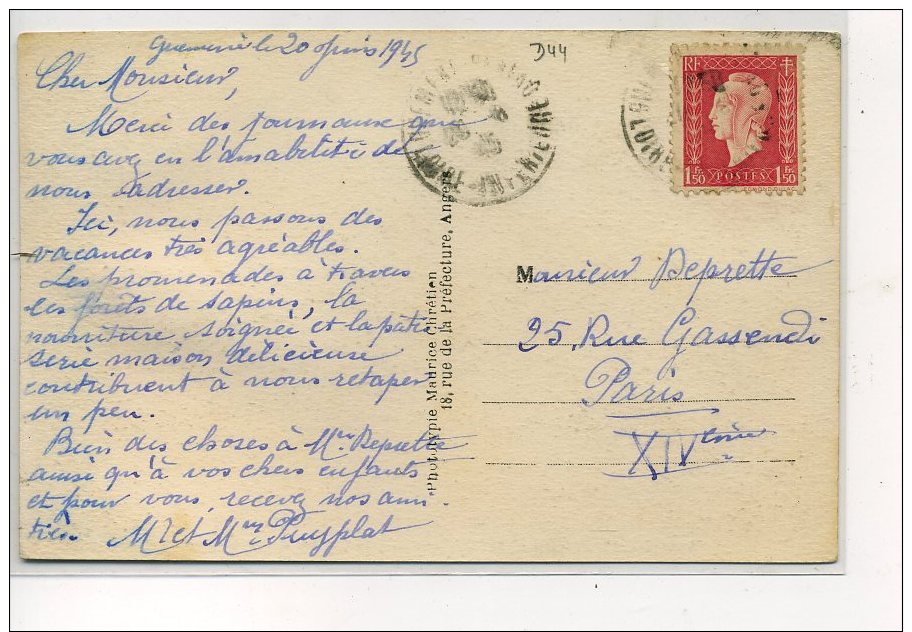 le 20 1945
D44
Cher Monsieur,
Merci des journaux que
vous avez eu l'amabilité de
nous adresser.
Ici, nous passons des
vacances très agréables.
Les promenades à travers
les forêts de sapins, la
nourriture soignée et la patis
serie maison délicieuse
contribuent à nous retaper
un peu.
Bien des choses à Mme Deprette
ainsi qu'à vos chers enfants
et pour vous, recevez nos ami-
tiés. Mr et Mme Puyplat
Phototypie Maurice Chrétien
18, rue de la Préfecture, Angers
RF
1F50 POSTES 1F50
LOIRE-INFERIEURE
Monsieur Deprette
25, Rue Gassendi
Paris
XIVème